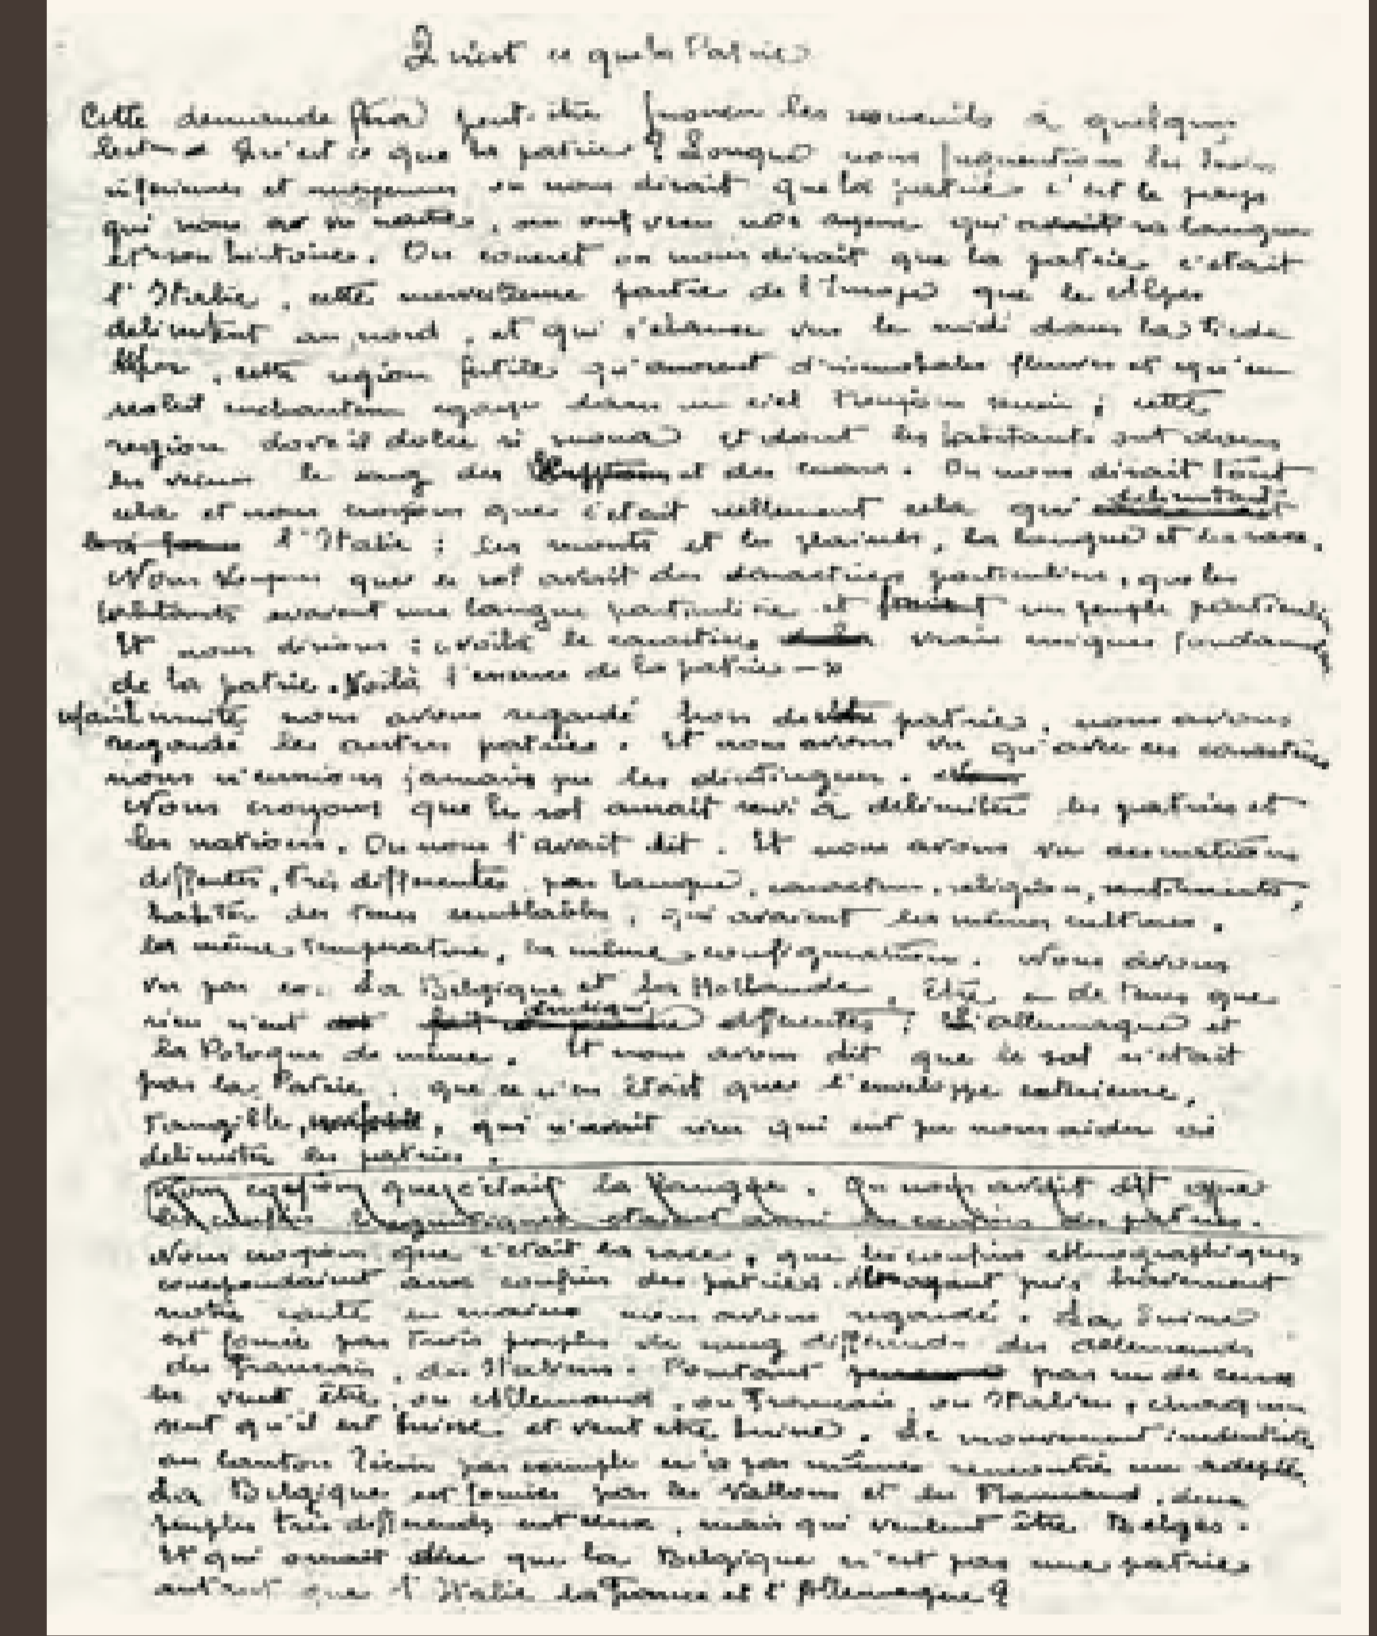 Qu'est ce que la Patrie
Cette demande fera peut-être froncer les sourcils à quelques
Qu'est ce que la patrie? Lorsque nous frequentions les
inferieures et moyennes on nous disait que la patrie c'est le pays
qui nous a vu naitre, ou ont vecu nos ayeux qui a sa langue
et son histoire. On nous disait que la patrie c'etait
l'Italie, cette merveilleuse partie de l'Europe que les Alpes
delimitent au nord, et qui s'elance vers le midi dans la tiede
Mer, cette region fertile qu'arrosent d'innombrables fleuves et qu'un
soleil enchanteur egaye dans un ciel toujours serein; cette
region dove il dolce si suona et dont les habitants ont dans
les veines le sang des et des . On nous disait tout
cela et nous croyions que c'etait reellement cela qui delimitait
l'Italie: les monts et les plaines, la langue et la race.
Nous croyions que le sol avait des caracteres particuliers, que les
habitants avaient une langue particulière et formaient un peuple particulier
Et nous disions: voilà le caractère vrai unique
de la patrie. Voilà l'essence de la patrie
nous avons regardé hors de patrie, nous avons
regardé les autres patries. Et nous avons vu qu'avec ces caractères
nous n'eussions jamais pu les distinguer.
Nous croyions que le sol aurait servi à delimiter les patries et
les nations. On nous l'avait dit. Et nous avons vu des nations
differentes, très differentes par langue, caractere, religion, sentiments,
habiter des terres semblables, qui avaient les mêmes cultures,
la même temperature, la même configuration. Nous avons
vu par ex. La Belgique et la Hollande, être de terres que
rien n'est differentes; L'Allemagne et
la Pologne de même. Et nous avons dit que le sol n'etait
pas la Patrie, que ce n'en était que l'enveloppe exterieure,
tangible, qui n'avait rien qui eut pu nous aider à
delimiter les patries.
Nous croyions que c'etait la langue. On nous avait dit que
les confins linguistiques etaient aussi les confins des patries.
Nous croyions que c'etait la race, que les confins ethnographiques
correspondaient aux confins des patries. ayant pris bravement
notre carte en mains nous avons regardé. La Suisse
est formée par trois peuples de sang differents des Allemands
des Francais, des Italiens. Pourtant pas un de ceux
la veut être, ou Allemand, ou Francais, ou Italien, chacun
sent qu'il est Suisse et veut etre Suisse. Le mouvement irredentiste
au Canton Ticin par exemple n'a pas même rencontré un adepte
La Belgique est formée par les Vallons et les Flammands, deux
peuples très differents entr'eux, mais qui veulent être Belges.
Et qui oserait dire que la Belgique n'est pas une patrie
autant que l'Italie la France et l'Allemagne?